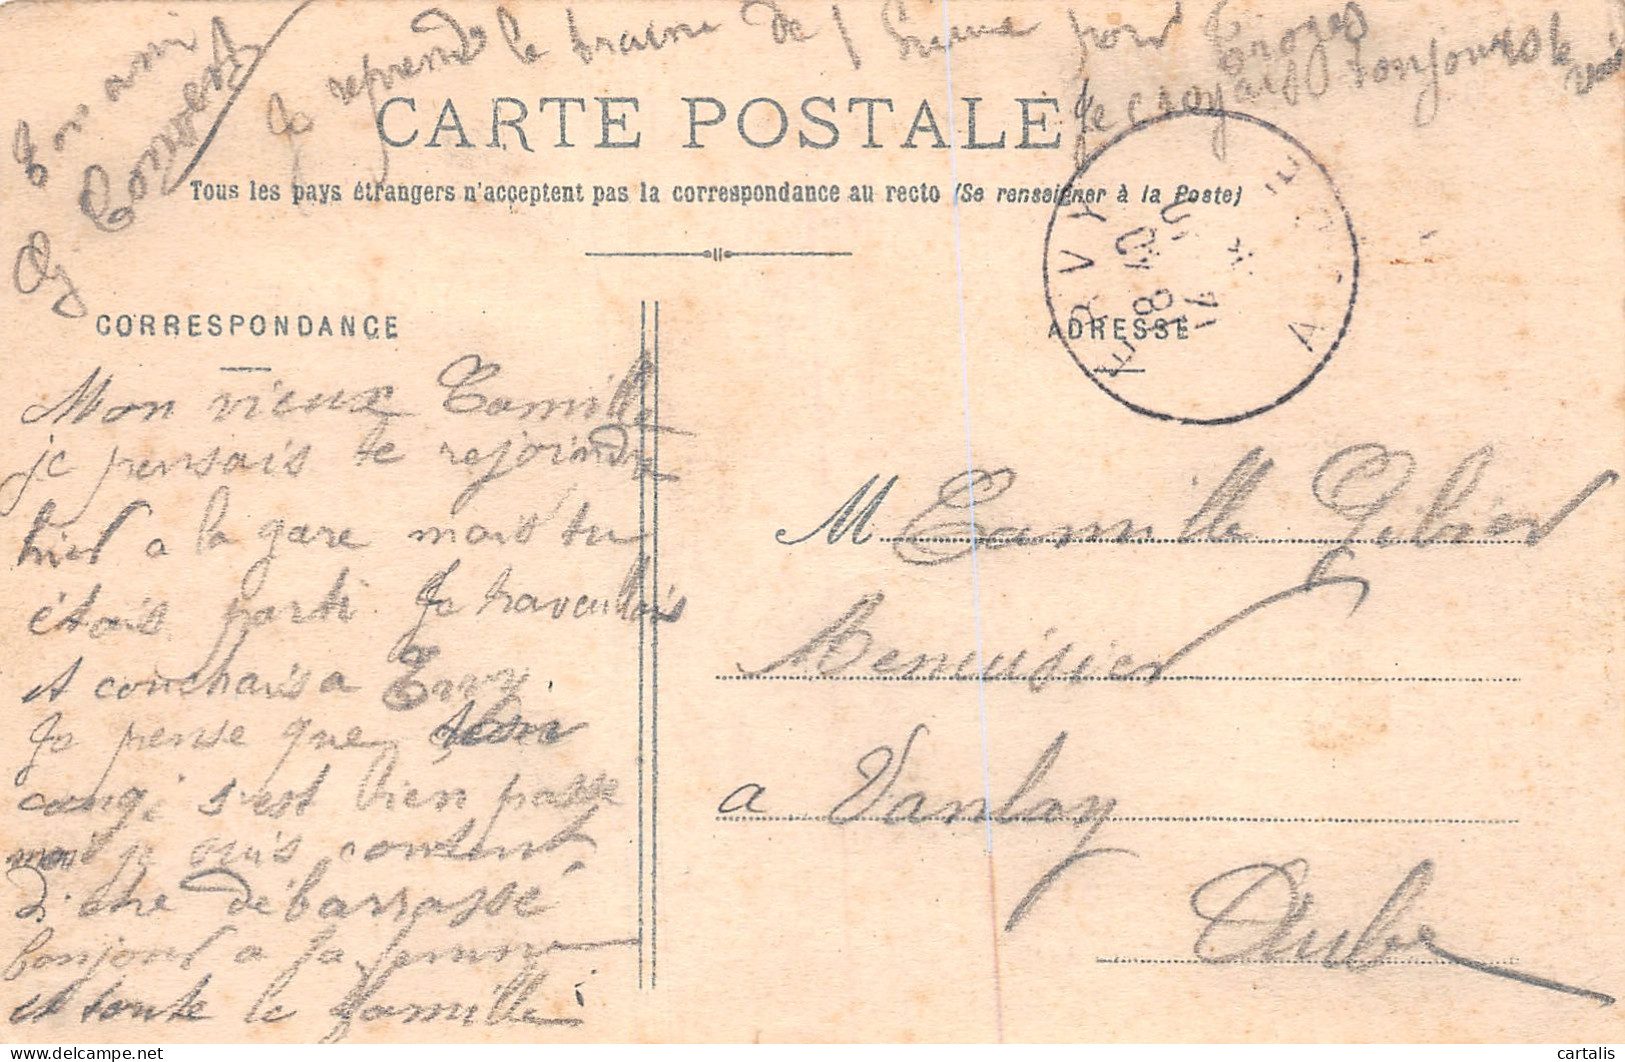 Je reprend le traine de 1 heure pour Troyes
je croyais toujours te voir
Ton ami
CARTE POSTALE
Tous les pays étrangers n'acceptent pas la correspondance au recto (Se renseigner à la Poste)
ERVY
CORRESPONDANCE
ADRESSE
Mon vieux Camille
je pensais te rejoindre
hier a la gare mais tu
étais parti. Je travaillais
et couchais a Ervy.
Je pense que ton
congé s'est bien passé
moi je suis content
d'etre débarrassé
bonjour a ta femme
et toute la famille
M Camille Gibier
Menuisier
a Vanlay
Aube
cartalis